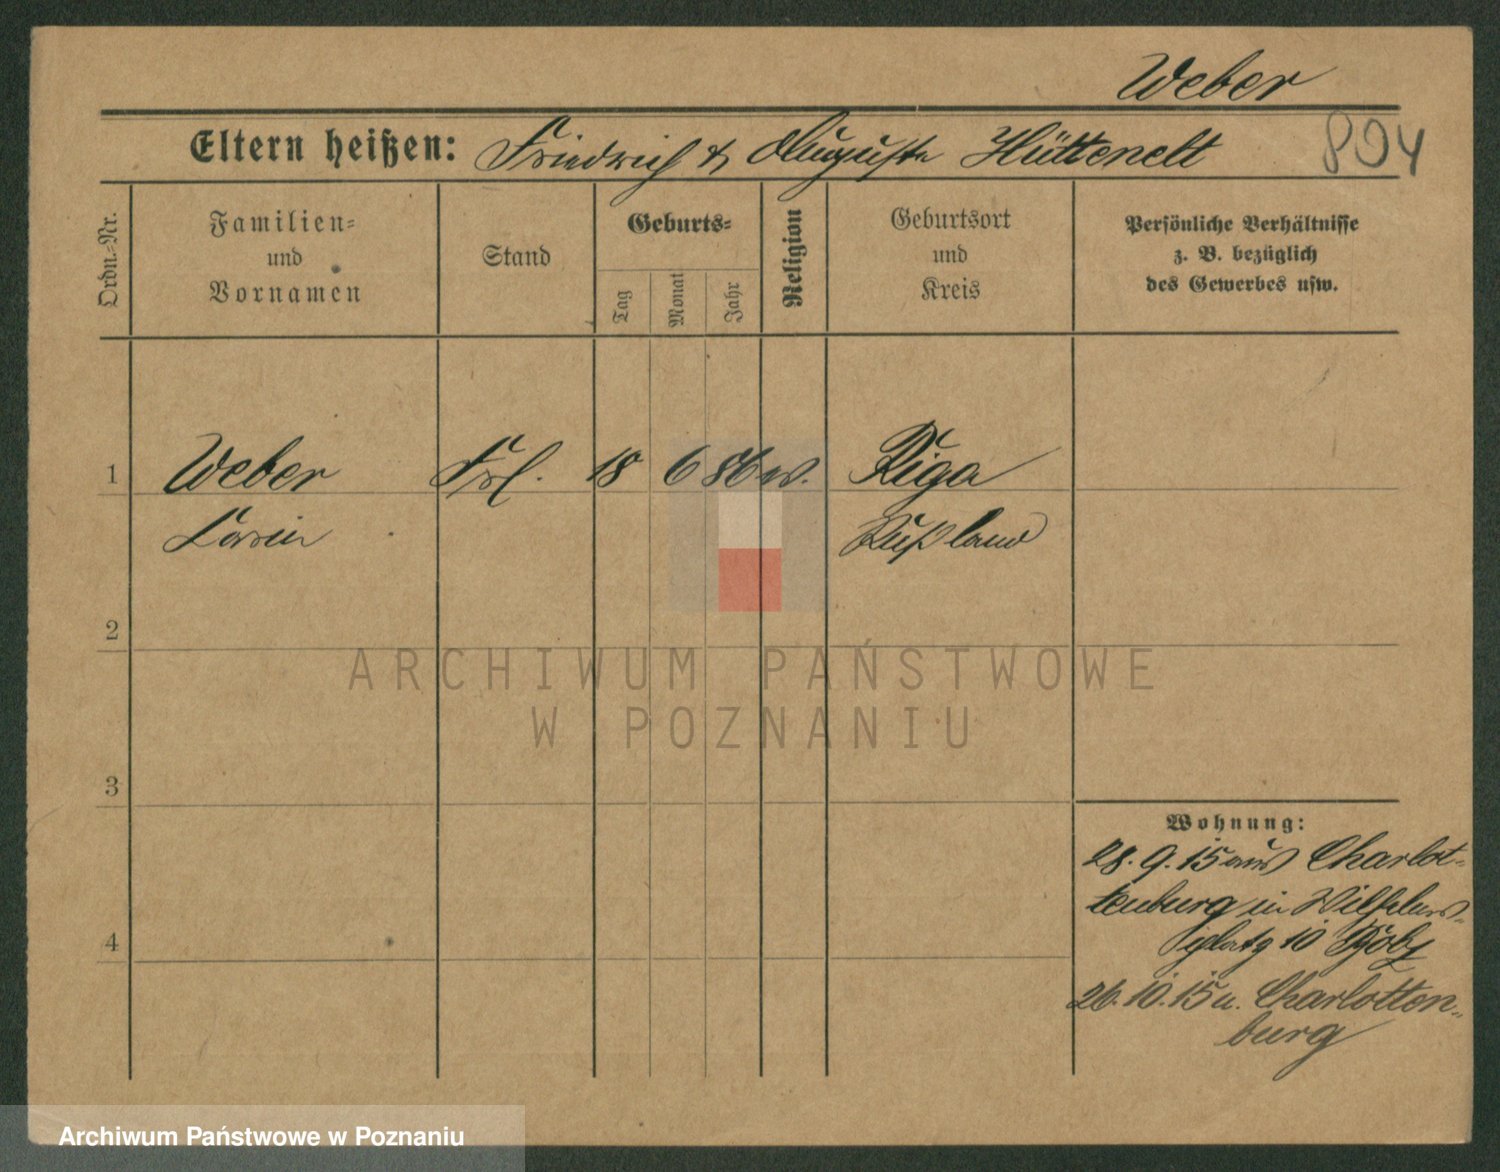 Weber
Eltern heißen: Friedrich & Auguste Hüttenelt
804
Ordn.=Nr.
Familien=
und
Vornamen
Stand
Geburts=
Tag
Monat
Jahr
Religion
Geburtsort
und
Kreis
Persönliche Verhältnisse
z. B. bezüglich
des Gewerbes usw.
1 Weber Frl. 18 6 86 ev. Riga
Rußland
2
3
4
ARCHIWUM PAŃSTWOWE
W POZNANIU
Wohnung:
28.9.15 aus Charlot=
tenburg in Wilhelms=
platz 10
26.10.15 n. Charlotten=
burg
Archiwum Państwowe w Poznaniu